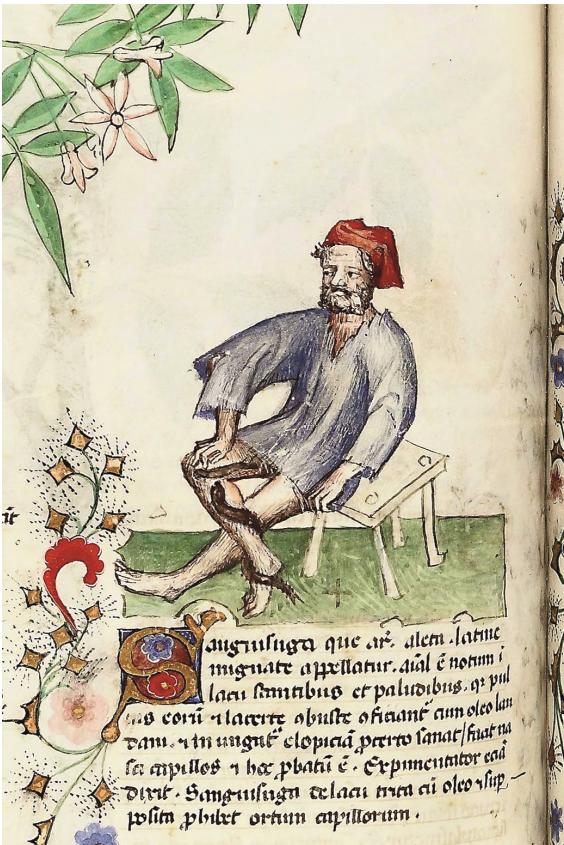 it
Sanguisuga que ar̃. aleca . latine
mignate appellatur. aīal ē notum ĩ
lacu stantibus et paludibus. qr pul
uis eorũ ⁊ lacerte obuste ꝯficiant᷑ cum oleo lau
dani. ⁊ in ungat᷑ elopiciã ꝓcerto sanat / facit na
sci capillos ⁊ hoc ꝓbatũ ē . Expimentator eciã
dixit . Sanguisuga de lacu trita cũ oleo ⁊ suꝑ
posita ꝓhibet ortum capillorum .